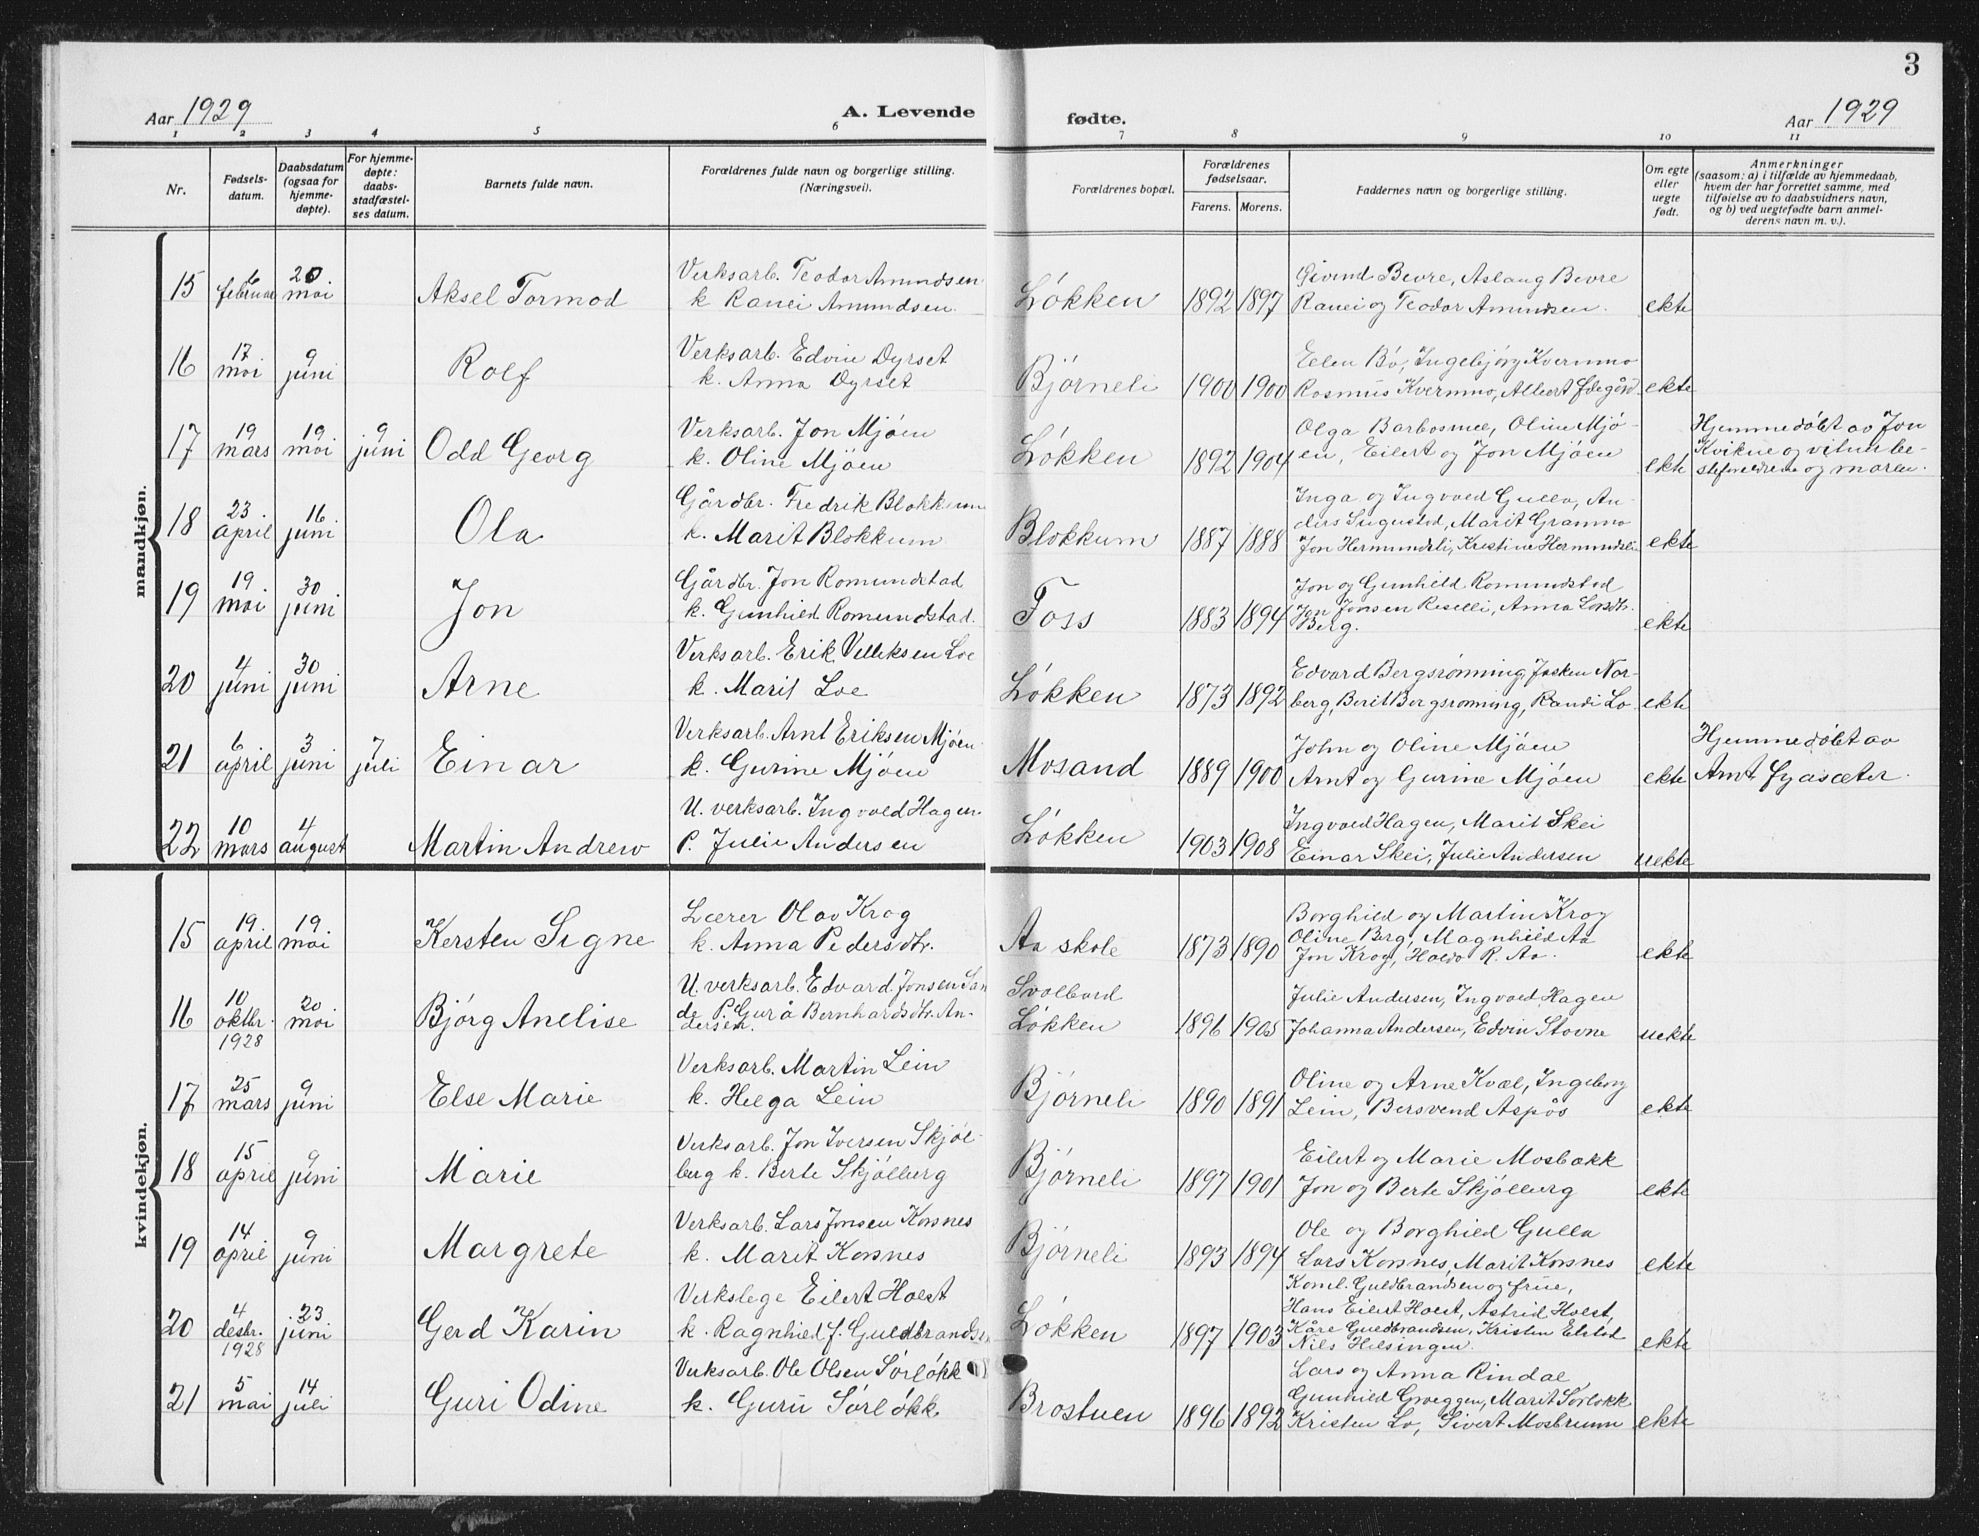 3
Aar 1929
A. Levende
fødte.
Aar 1929
1 2 3 4 5 6 7 8 9 10 11
Nr.
Fødsels-
datum.
Daabsdatum
(ogsaa for
hjemme-
døpte).
For hjemme-
døpte:
daabs-
stadfæstel-
ses datum.
Barnets fulde navn.
Forældrenes fulde navn og borgerlige stilling.
(Næringsvei).
Forældrenes bopæl.
Forældrenes
fødselsaar.
Farens. Morens.
Faddernes navn og borgerlige stilling.
Om egte
eller
uegte
født.
Anmerkninger
(saasom: a) i tilfælde av hjemmedaab,
hvem der har forrettet samme, med
tilføielse av to daabsvidners navn,
og b) ved uegtefødte barn anmel-
derens navn m. v.).
mandkjøn.
15
6
februar
20
mai
Aksel Tormod
Verksarb. Teodor Amundsen
k Ranei Amundsen.
Løkken
1892 1897
Øivind Bevre, Aslaug Bevre
Ranei og Teodor Amundsen.
ekte
16
17
mai
9
juni
Rolf
Verksarb. Edvin Dyrset
k. Anna Dyrset
Bjørneli
1900 1900
Ellen Bö, Ingebjørg Kvernmo
Rasmus Kvernmo, Albert
ekte
17
19
mars
19
mai
9
juni
Odd Georg
Verksarb. Jon Mjøen
k. Oline Mjøen
Løkken
1892 1904
Olga Barbosmel, Oline Mjö-
en, Eilert og Jon Mjöen
ekte
Hjemmedöbt av Jon
Kvikne og vitun be-
steforeldrene og moren.
18
23
april
16
juni
Ola
Gårdbr. Fredrik Blokkum
k. Marit Blokkum
Blokkum
1887 1888
Inga og Ingvald Gulla, An-
ders Sugustad, Marit Gramno
Jon Hermundsli, Kristine Hermundsli
ekte
19
19
mai
30
juni
Jon
Gårdbr. Jon Romundstad
k. Gunhild Romundstad.
Foss
1883 1894
Jon og Gunhild Romundstad
Jon Jonsen Reselli, Anna Larsdtr.
Berg.
ekte
20
4
juni
30
juni
Arne
Verksarb. Erik Velleksen Loe
k. Marit Loe
Løkken
1873 1892
Edvard Bergsrønning, Josken Nor-
berg, Berit Bergsrønning, Randi Lo
ekte
21
6
april
3
juni
7
juli
Einar
Verksarb. Arnt Eriksen Mjöen
k. Gurine Mjöen
Mosand
1889 1900
John og Oline Mjöen
Arnt og Gurine Mjöen
ekte
Hjemmedöbt av
Arnt Fyasæter.
22
10
mars
4
august
Martin Andrew
U. verksarb. Ingvald Hagen.
P. Julie Andersen
Løkken
1903 1908
Ingvald Hagen, Marit Skei
Einar Skei, Julie Andersen
uekte
kvindekjøn.
15
19
april
19
mai
Kersten Signe
Lærer Olav Krog
k. Anna Pedersdtr.
Aa skole
1873 1890
Borghild og Martin Krog
Oline Berg, Magnhild Aa
Jon Krog, Haldo R. Aa.
ekte
16
10
oktbr.
1928
20
mai
Bjørg Anelise
U. verksarb. Edvard Jonsen San
de P. Gurå Bernhardsdtr. An-
dersen.
Svalbard
Løkken
1896 1905
Julie Andersen, Ingvald Hagen
Johanna Andersen, Edvin Stovne
uekte
17
25
mars
9
juni
Else Marie
Verksarb. Martin Lein
k. Helga Lein
Bjørneli
1890 1891
Oline og Arne Kvål, Ingeborg
Lein, Bersvend Aspös
ekte
18
15
april
9
juni
Marie
Verksarb. Jon Iversen Skjöl-
berg k. Berte Skjölberg
Bjørneli
1897 1901
Eilert og Marie Mosbakk
Jon og Berte Skjölberg
ekte
19
14
april
9
juni
Margrete
Verksarb. Lars Jonsen Korsnes
k. Marit Korsnes
Bjørneli
1893 1894
Ole og Borghild Gulla
Lars Korsnes, Marit Korsnes
ekte
20
4
desbr.
1928
23
juni
Gerd Karin
Verkslege Eilert Holst
k. Ragnhild f. Guldbrandsen
Løkken
1897 1903
Konel. Guldbrandsen og frue,
Hans Eilert Holst, Astrid Holst,
Kåre Guldbrandsen, Kristen Elstad
Nils Helsingen.
ekte
21
5
mai
14
juli
Guri Odine
Verksarb. Ole Olsen Sörlökk
k. Guru Sörlökk
Brostuen
1896 1892
Lars og Anna Rindal
Gunhild Groeggen, Marit Sörlökk
Kristen Lo, Sivert Mosbrunn
ekte